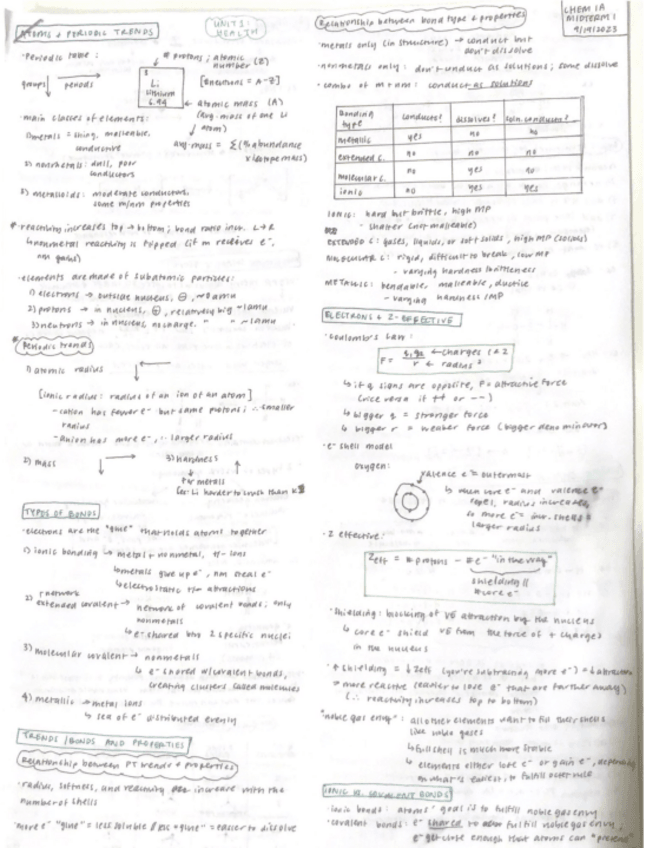 ATOMS & PERIODIC TRENDS
UNIT 1:
HEALTH
· Periodic table:
groups periods
# protons; atomic
number (Z)
3
Li
lithium
6.94
[#neutrons = A-Z]
← atomic mass (A)
(avg. mass of one Li
atom)
avg. mass = Σ(% abundance
x isotope mass)
· main classes of elements:
1) metals = shiny, malleable,
conductive
2) nonmetals: dull, poor
conductors
3) metalloids: moderate conductors,
some m/nm properties
* reactivity increases top → bottom; L → R
↳ nonmetal reactivity is flipped (if m receives e-,
nm gains)
· elements are made of subatomic particles:
1) electrons → outside nucleus, ⊖, ~0 amu
2) protons → in nucleus, ⊕, relatively big ~1amu
3) neutrons → in nucleus, no charge, " " ~1amu
* Periodic trends
1) atomic radius
[ionic radius: radius of an ion of an atom]
- cation has fewer e- but same protons; ∴ smaller
radius
- Anion has more e-, ∴ larger radius
2) mass
3) hardness
for metals
(ex: Li harder to crush than K)
TYPES OF BONDS
· electrons are the "glue" that holds atoms together
1) ionic bonding ↳ metal + nonmetal, +/- ions
↳ metals give up e-, nm steal e-
↳ electrostatic +/- attractions
2) network
extended covalent → network of covalent bonds; only
nonmetals
↳ e- shared btw 2 specific nuclei
3) molecular covalent → nonmetals
↳ e- shared w/covalent bonds,
creating clusters called molecules
4) metallic → metal ions
↳ sea of e- distributed evenly
TRENDS / BONDS AND PROPERTIES
Relationship between PT trends + properties
· radius, softness, and reactivity increase with the
number of shells
· more e- "glue" = less soluble / less "glue" = easier to dissolve
Relationship between bond type + properties
CHEM 1A
MIDTERM 1
9/19/2023
· metals only (in structure) → conduct but
don't dissolve
· nonmetals only: don't conduct as solutions; some dissolve
· combo of m + nm: conduct as solutions
Bonding
type conducts? dissolves? soln. conducts?
metallic yes no no
extended c. no no no
molecular c. no yes no
ionic no yes yes
IONIC: hard but brittle, high MP
- shatter (not malleable)
EXTENDED C: gases, liquids, or soft solids, high MP (solids)
MOLECULAR C: rigid, difficult to break, low MP
- varying hardness/brittleness
METALLIC: bendable, malleable, ductile
- varying hardness/MP
ELECTRONS & Z-EFFECTIVE
· Coulomb's Law:
F = q1q2 ← charges 1 & 2
r ← radius²
↳ if q signs are opposite, F = attractive force
(vice versa if ++ or --)
↳ bigger q = stronger force
↳ bigger r = weaker force (bigger denominator)
· e- shell model
oxygen:
valence e- = outermost
↳ when core e- and valence e-
repel, radius increases,
so more e- = incr. shells =
larger radius
· Z effective:
Zeff = # protons - # e- "in the way"
shielding //
# core e-
· Shielding: blocking of VE attraction by the nucleus
↳ core e- shield VE from the force of + charges
in the nucleus
· ↑ shielding = ↓ Zeff (you're subtracting more e-) = ↓ attraction
= more reactive (easier to lose e- that are farther away)
(∴ reactivity increases top to bottom)
"noble gas envy": all other elements want to fill their shells
like noble gases
↳ full shell is much more stable
↳ elements either lose e- or gain e-, depending
on what's easiest, to fulfill octet rule
IONIC VS. COVALENT BONDS
· ionic bonds: atoms' goal is to fulfill noble gas envy
· covalent bonds: e- shared to fulfill noble gas envy;
e- get close enough that atoms can